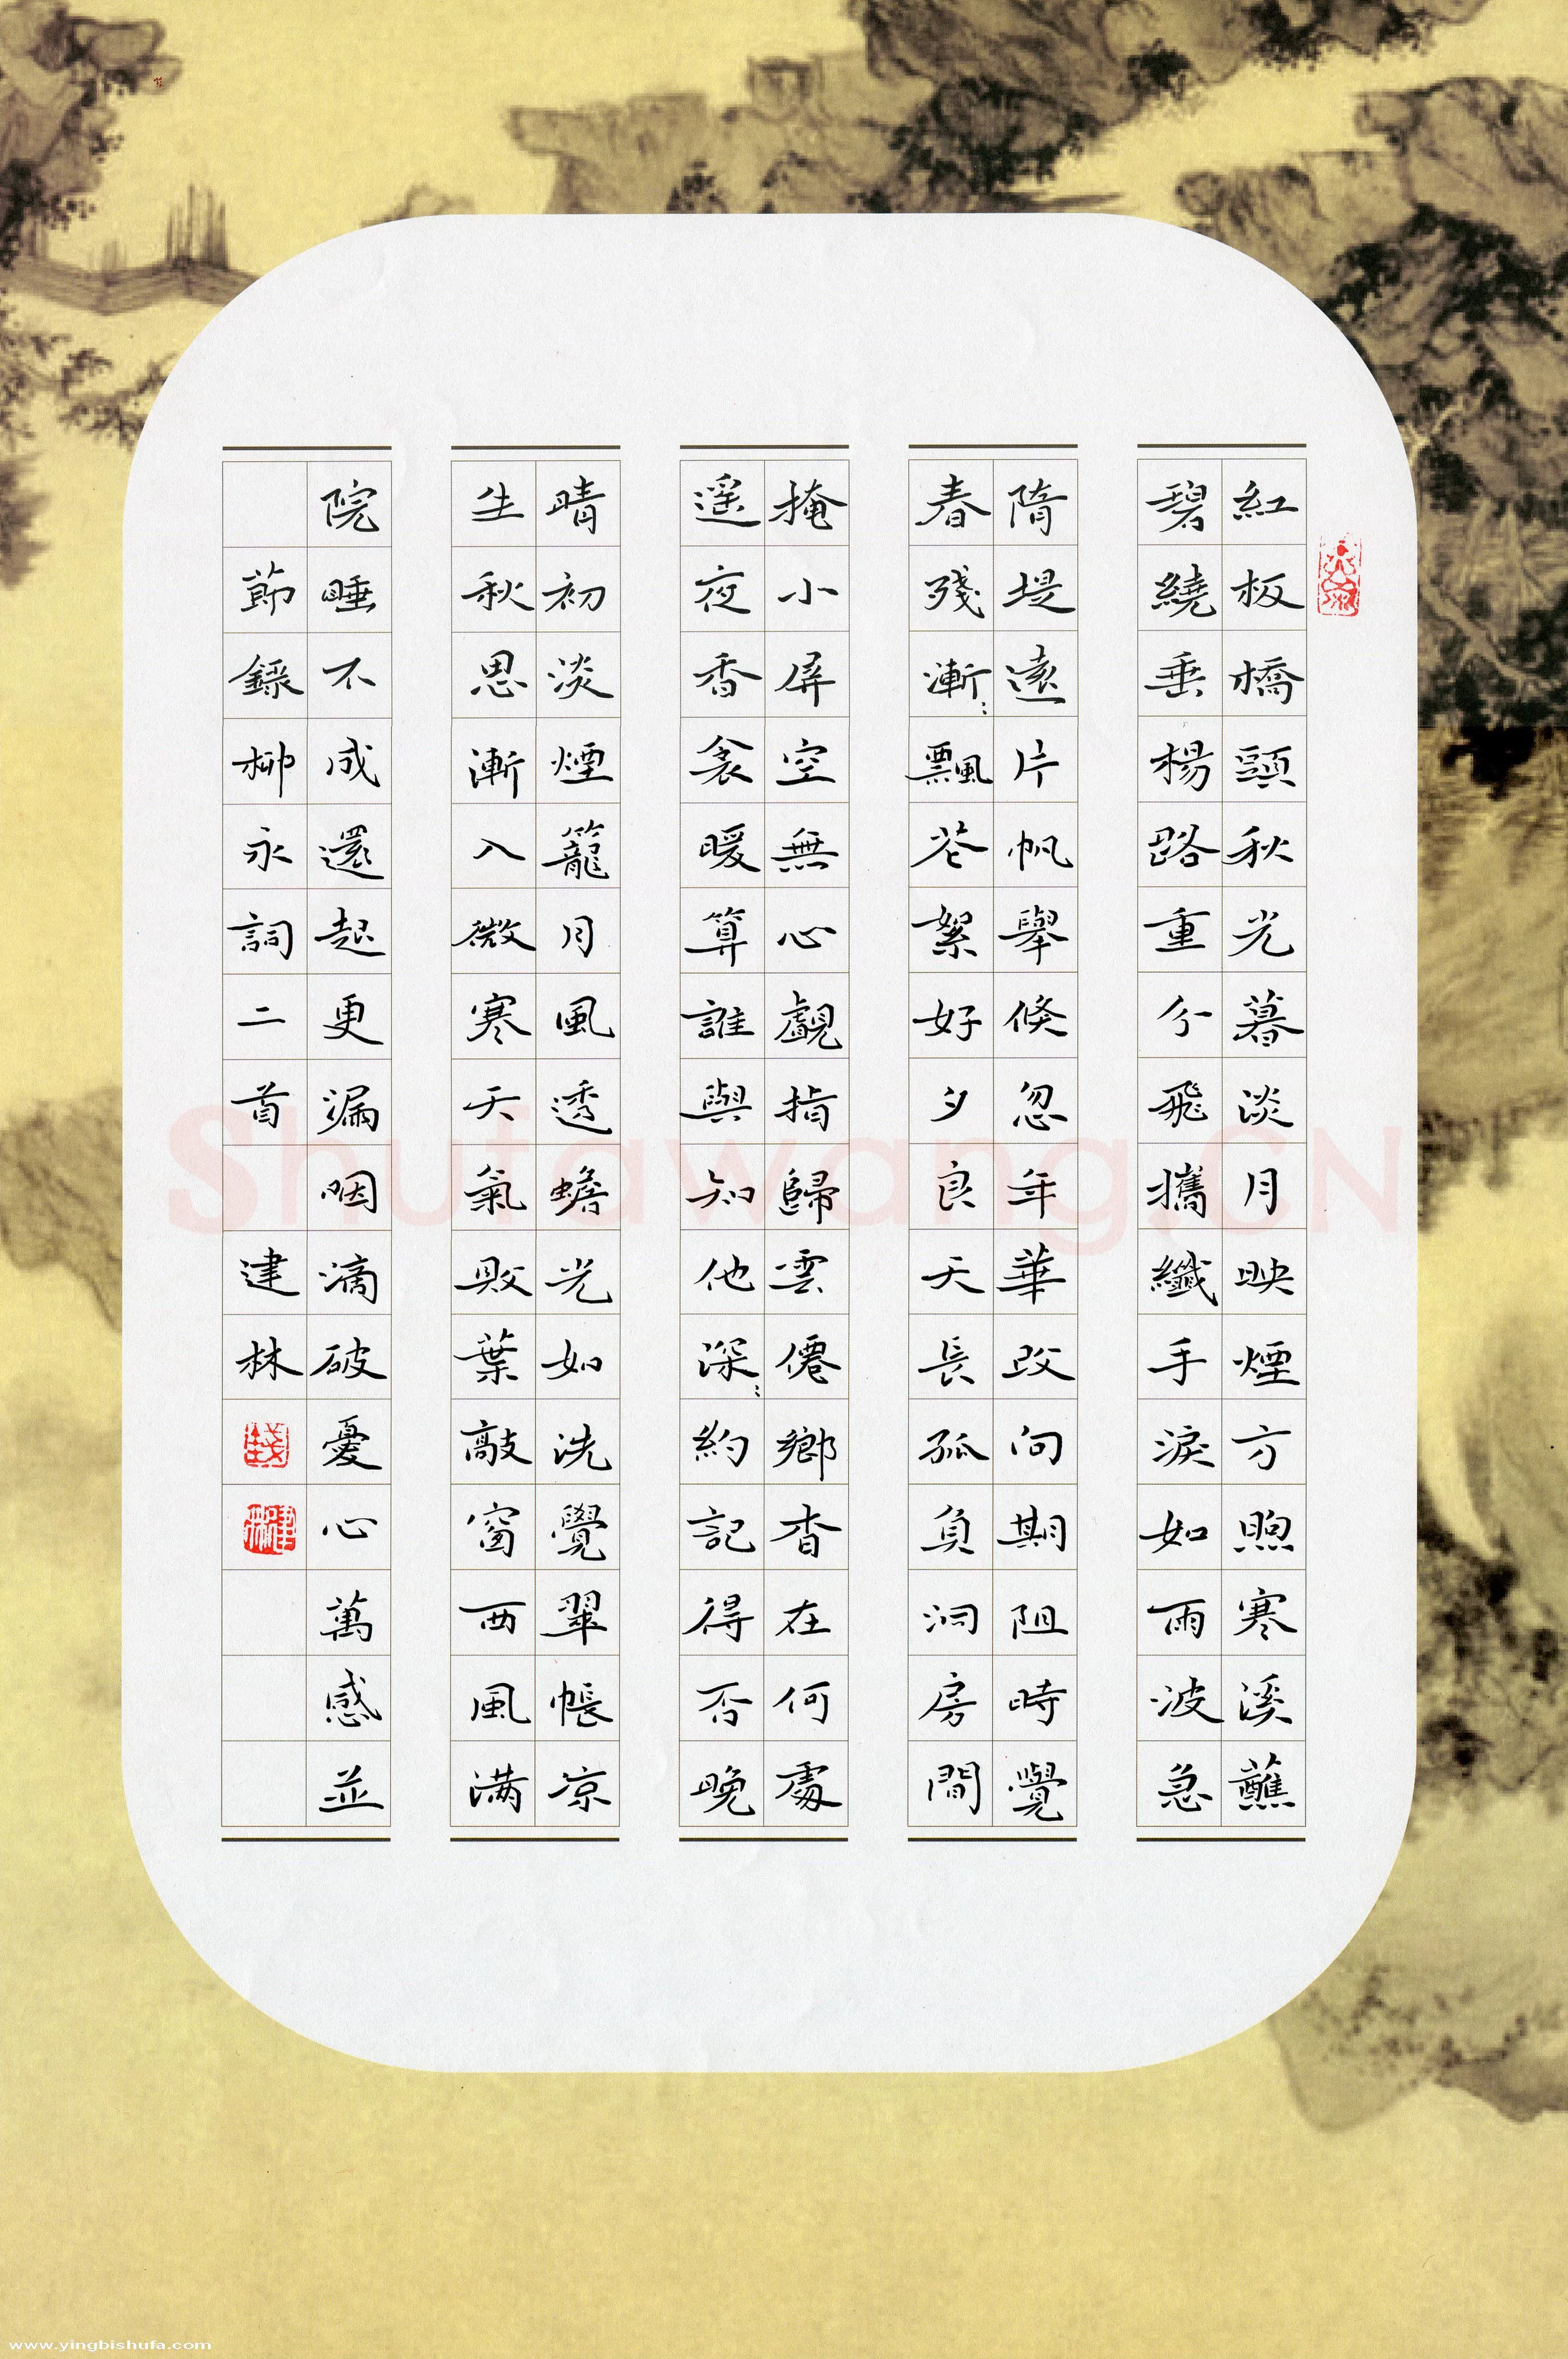 紅板橋頭秋光暮淡月映煙方煦寒溪蘸
碧繞垂楊路重分飛攜纖手淚如雨波急
隋堤遠片帆舉倏忽年華改向期阻時覺
春殘漸〻飄花絮好夕良天長孤負洞房閒
掩小屏空無心覷指歸雲僊鄉杳在何處
遥夜香衾暖算誰與知他深〻約記得否晚
晴初淡煙籠月風透蟾光如洗覺翠帳凉
生秋思漸入微寒天氣敗葉敲窗西風滿
院睡不成還起更漏咽滴破憂心萬感並
節錄柳永詞二首 建林
錢
建林
Shufawang.CN
www.yingbishufa.com